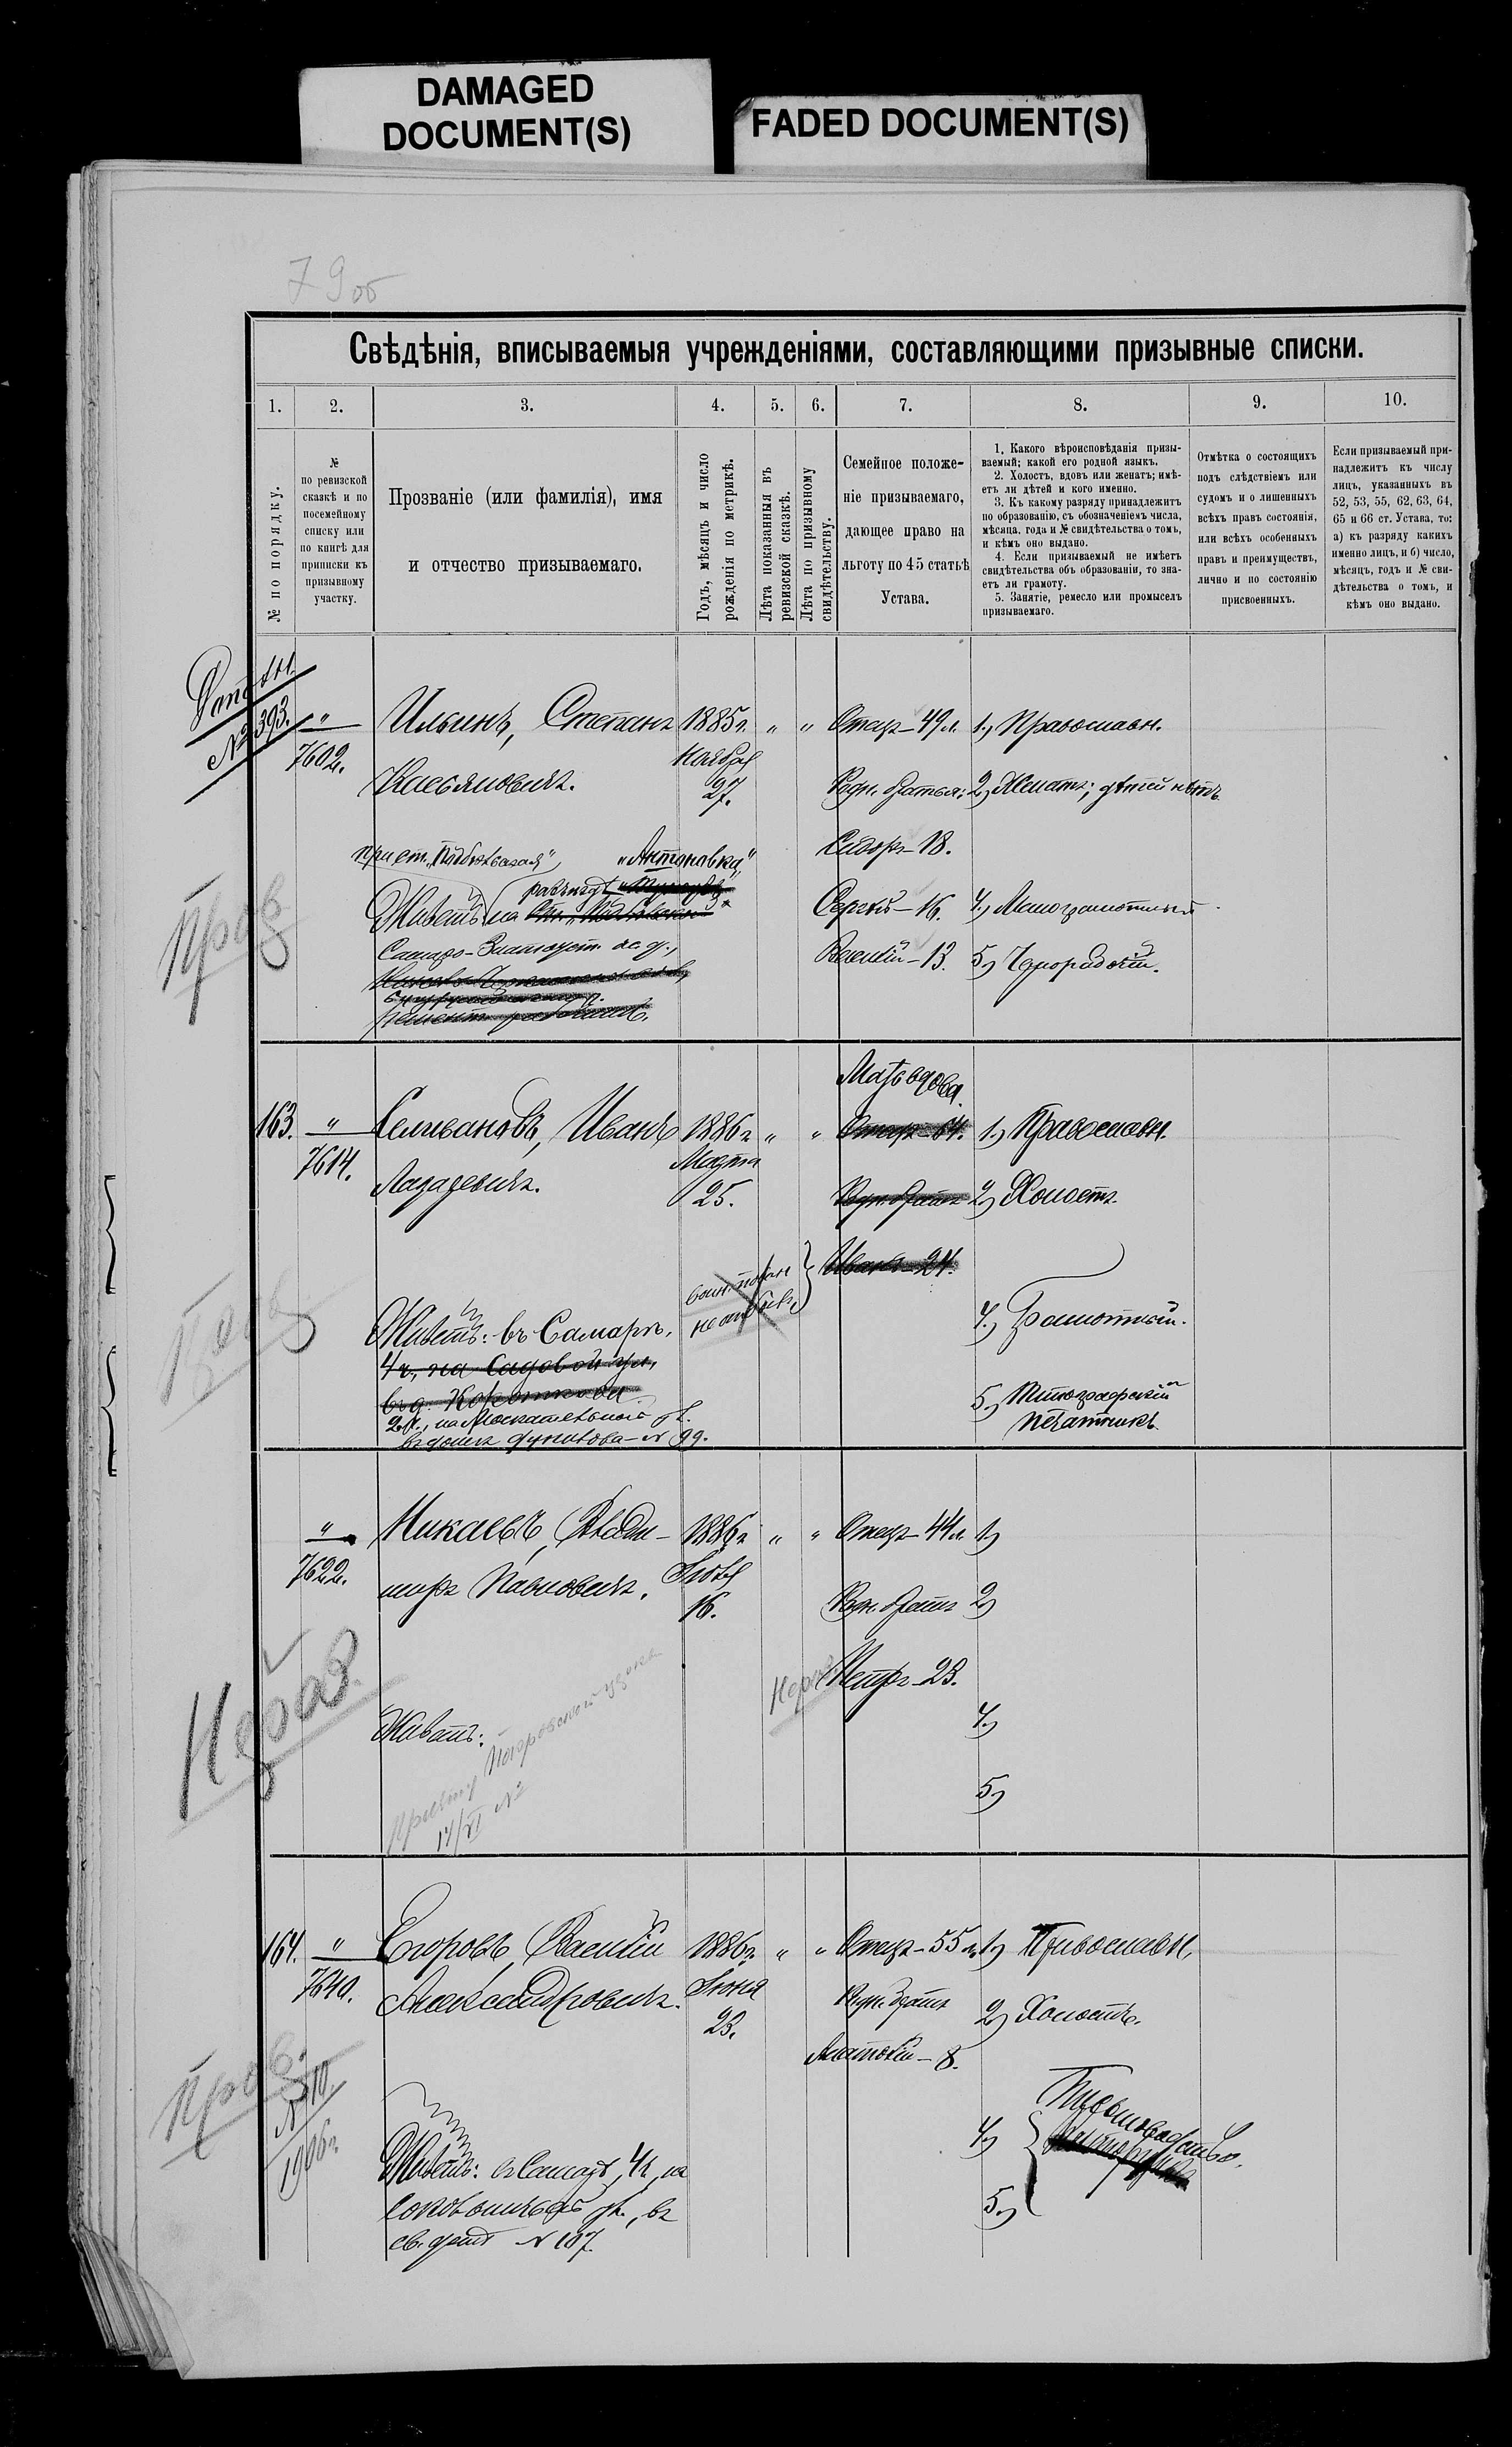 DAMAGED
DOCUMENT(S)
FADED DOCUMENT(S)
79 об
Свѣдѣнія, вписываемыя учрежденіями, составляющими призывные списки.
1.
2.
3.
4.
5.
6.
7.
8.
9.
10.
№ по порядку.
№
по ревизской
сказкѣ и по
посемейному
списку или
по книгѣ для
приписки къ
призывному
участку.
Прозваніе (или фамилія), имя
и отчество призываемаго.
Годъ, мѣсяцъ и число
рожденія по метрикѣ.
Лѣта показанныя въ
ревизской сказкѣ.
Лѣта по призывному
свидѣтельству.
Семейное положе-
ніе призываемаго,
дающее право на
льготу по 45 статьѣ
Устава.
1. Какого вѣроисповѣданія призы-
ваемый; какой его родной языкъ.
2. Холостъ, вдовъ или женатъ; имѣ-
етъ ли дѣтей и кого именно.
3. Къ какому разряду принадлежитъ
по образованію, съ обозначеніемъ числа,
мѣсяца, года и № свидѣтельства о томъ,
и кѣмъ оно выдано.
4. Если призываемый не имѣетъ
свидѣтельства объ образованіи, то зна-
етъ ли грамоту.
5. Занятіе, ремесло или промыселъ
призываемаго.
Отмѣтка о состоящихъ
подъ слѣдствіемъ или
судомъ и о лишенныхъ
всѣхъ правъ состоянія,
или всѣхъ особенныхъ
правъ и преимуществъ,
лично и по состоянію
присвоенныхъ.
Если призываемый при-
надлежитъ къ числу
лицъ, указанныхъ въ
52, 53, 55, 62, 63, 64,
65 и 66 ст. Устава, то:
а) къ разряду какихъ
именно лицъ, и б) число,
мѣсяцъ, годъ и № сви-
дѣтельства о томъ, и
кѣмъ оно выдано.
№ 393.
"
7602.
Ильинъ, Степанъ
Касьяновичъ.
1885 г.
Ноября
27.
"
"
Отецъ - 49 л.
Родн. братья:
Сидоръ - 18.
Сергѣй - 16.
Василій - 13.
1) Православн.
2) Женатъ; дѣтей нѣтъ
4) Малограмотный
5) Чернорабочій.
при ст.
"Антоновка"
Живетъ на
Самаро-Златоуст. ж. д.,
163.
"
7614.
Селивановъ, Иванъ
Лазаревичъ.
1886 г.
Марта
25.
"
"
Мать вдова.
Отецъ - 64.
Родн. братъ
Иванъ - 24.
1) Православн.
2) Холостъ
4) Грамотный.
5)
печатникъ.
Живетъ: въ Самарѣ,
4 ч., на Садовой ул.,
въ д.
2 ч., на Москательной ул.
въ домѣ № 99.
"
7622.
Микаевъ, Влади-
миръ Павловичъ.
1886 г.
Іюля
16.
"
"
Отецъ - 44 л.
Родн. братъ
Петръ - 23.
1)
2)
4)
5)
Живетъ:
164.
"
7640.
Егоровъ, Василій
Александровичъ.
1886 г.
Іюня
23.
"
"
Отецъ - 55 л.
Родн. братъ
Анатолій - 8.
1) Православн.
2) Холостъ.
4)
5)
Пров.
№ 10.
1906 г.
Живетъ: въ Самарѣ, 4 ч., на
Соковьинской ул., въ
св. домѣ № 107.